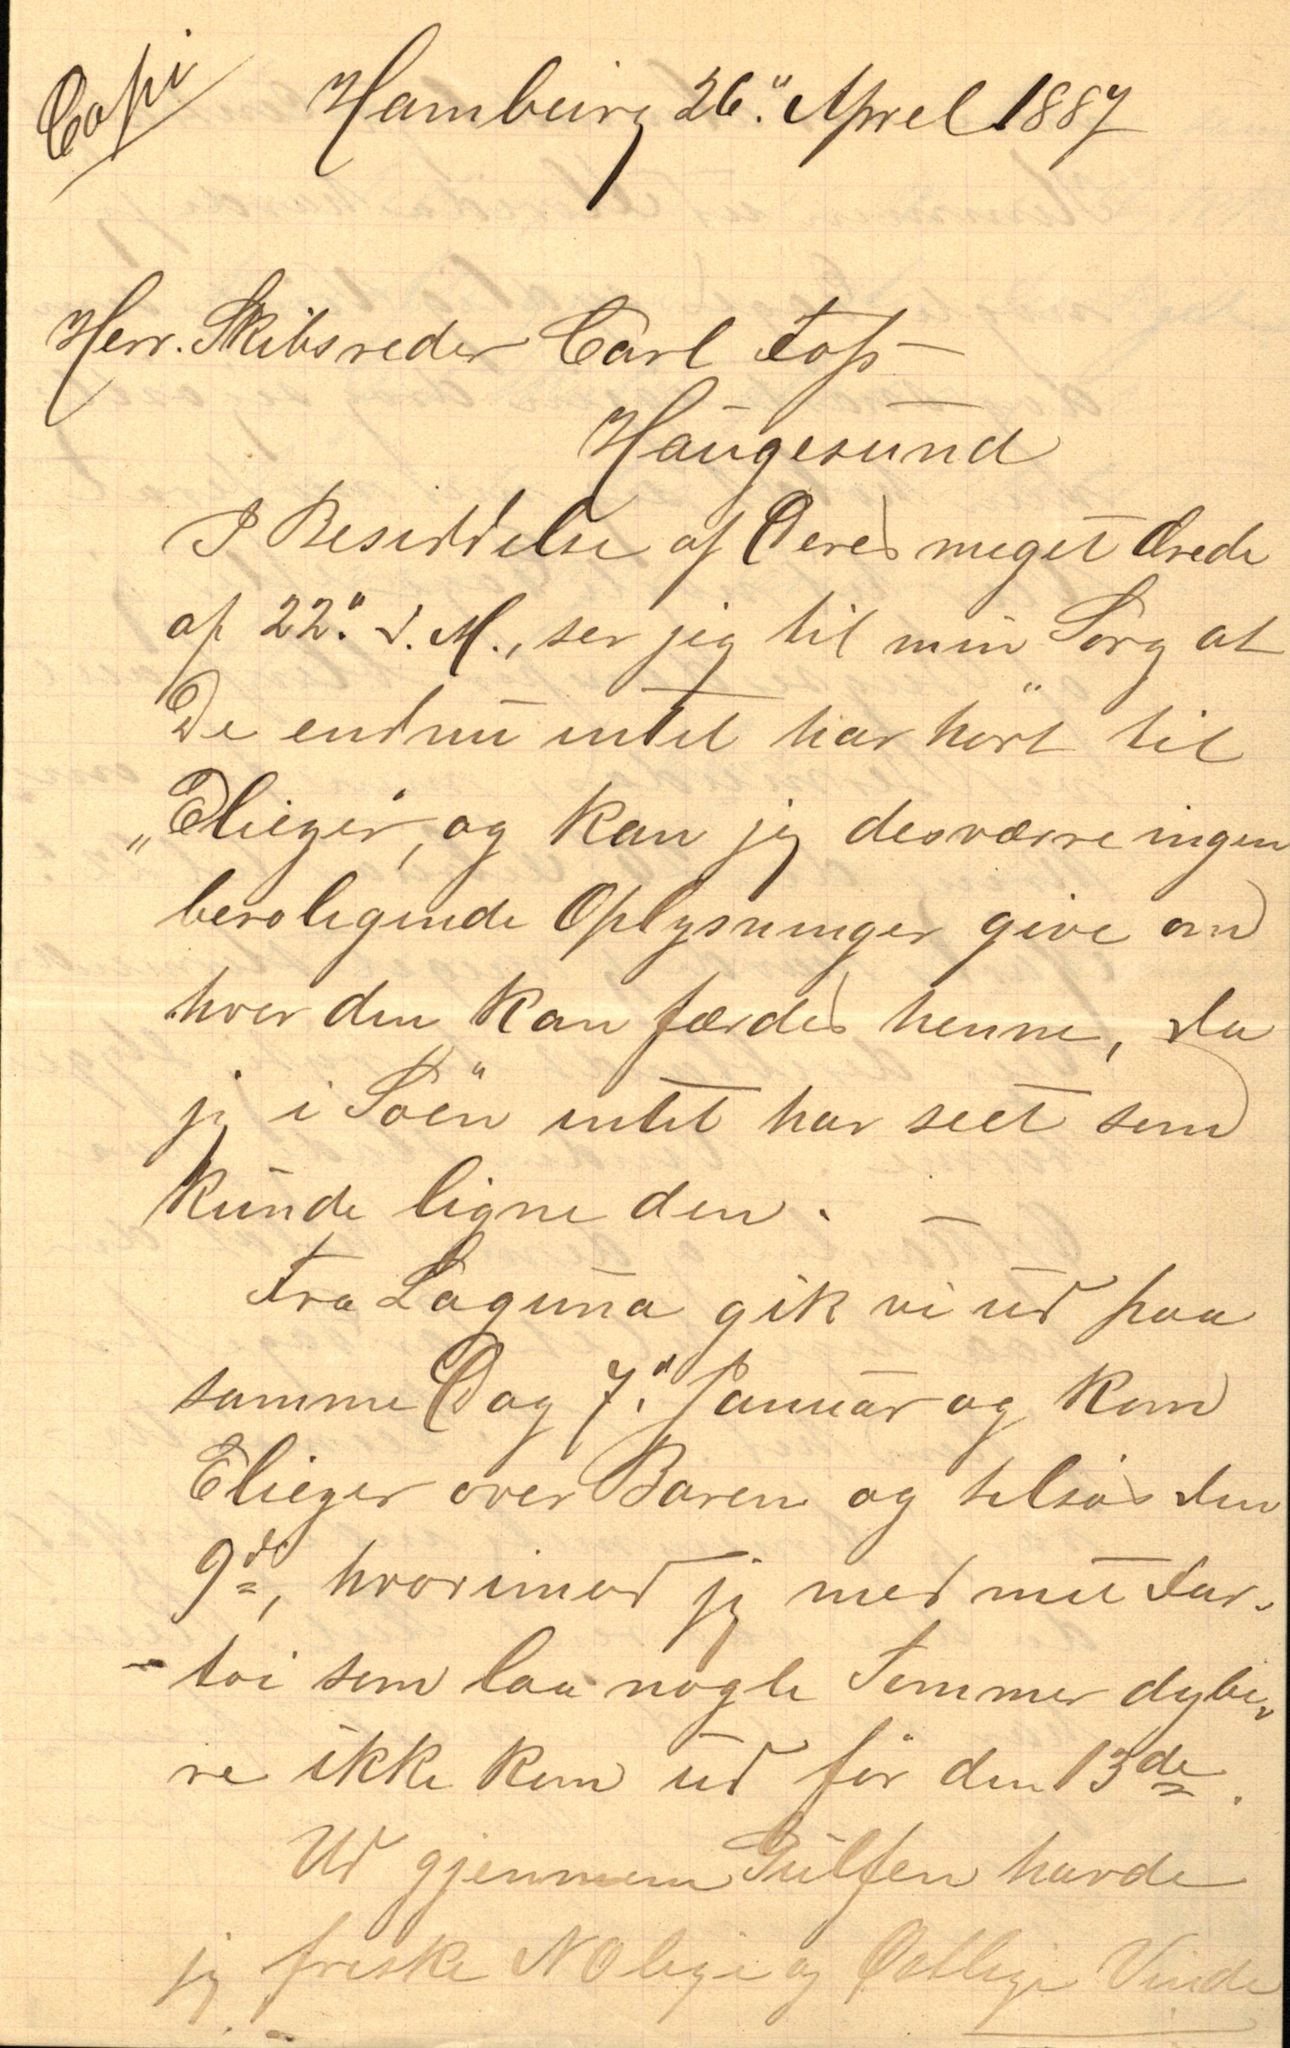 Copi
Hamburg 26." April 1887
Herr. Skibsreder Carl Foss
Haugesund
I Besiddelse af Deres meget Ærede
af 22." d. M., ser jeg til min Sorg at
De endnu intet har hört til
„Elieser", og kan jeg desværre ingen
beroligende Oplysninger give om
hvor den kan færdes henne, da
jeg i Söen intet har seet som
kunde ligne den.
Fra Laguna gik vi ud paa
samme Dag 7." Januar og kom
Elieser over Baren og tilsös den
9de, hvorimod jeg med mit Far-
-töi som laa nogle Tommer dybe-
re ikke kom ud för den 13de.
Ud gjennem Gulfen havde
jeg friske NOlige og Östlige Vinde